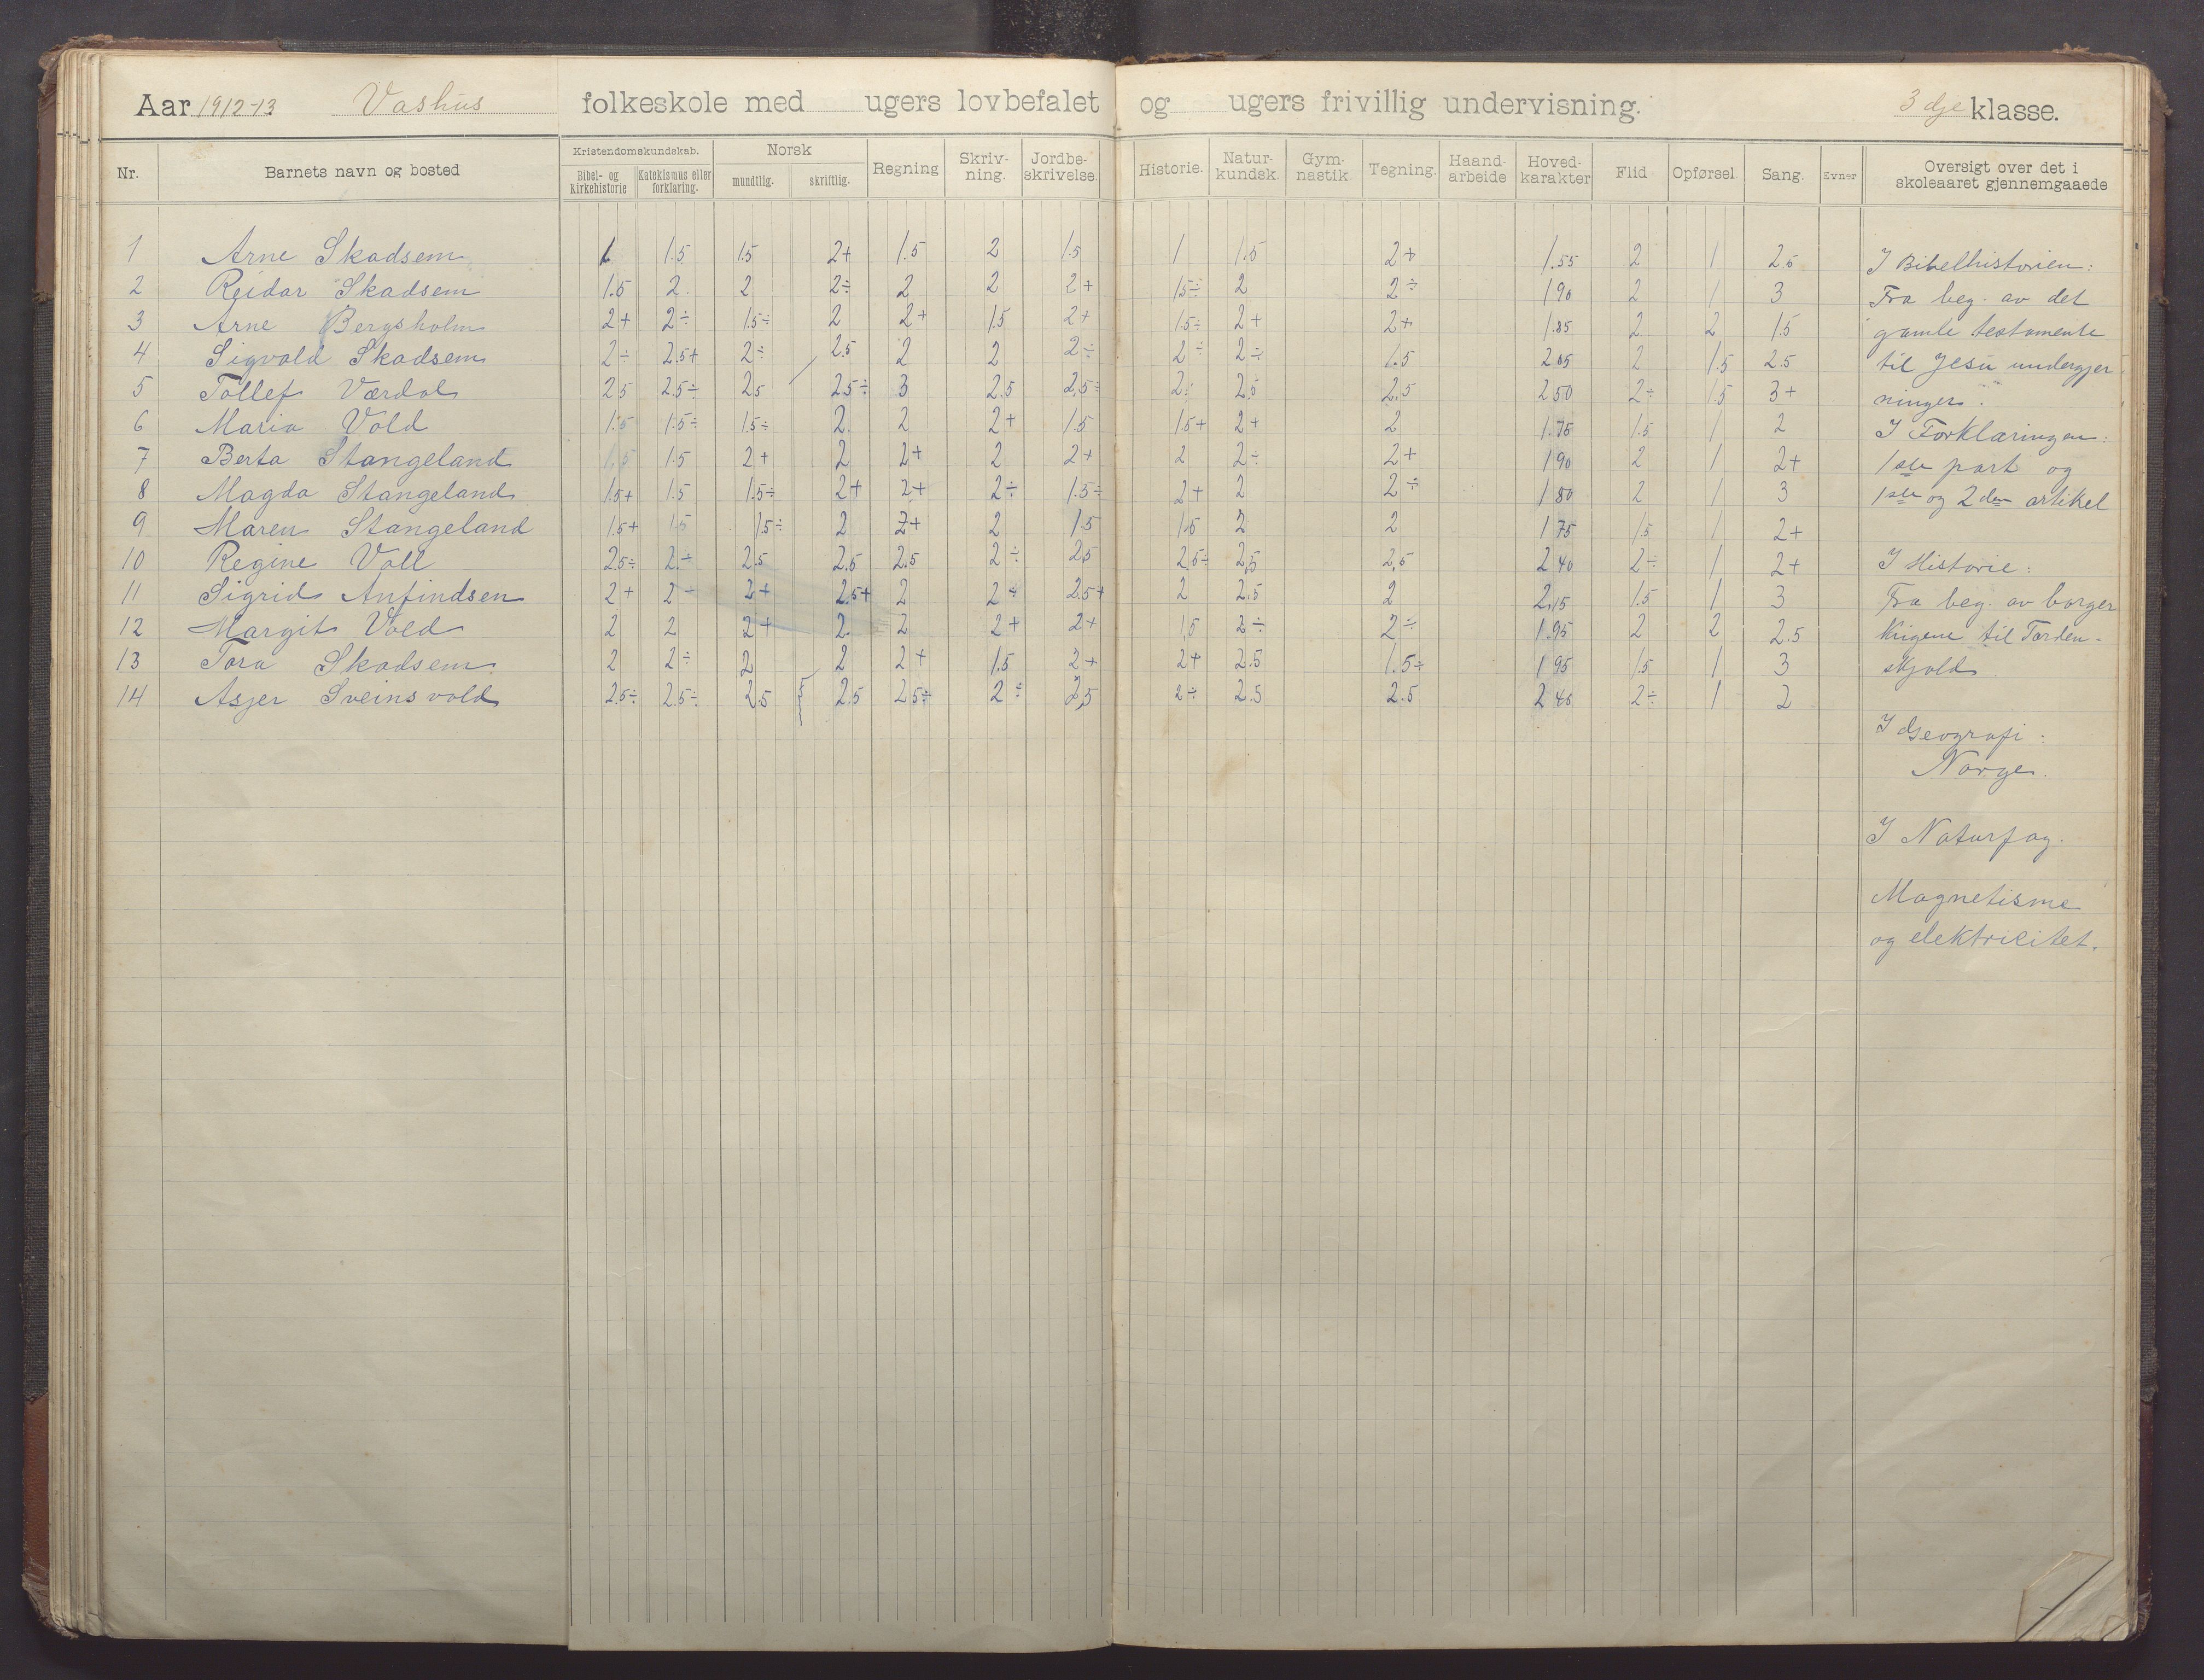 Aar 1912-13 Vashus folkeskole med ugers lovbefalet og ugers frivillig undervisning. 3dje klasse.
Nr. Barnets navn og bosted Kristendomskundskab. Bibel- og kirkehistorie Katekismus eller forklaring. Norsk mundtlig. skriftlig. Regning Skriv-ning. Jordbe-skrivelse. Historie. Natur-kundsk. Gym-nastik Tegning. Haand-arbeide Hoved-karakter Flid Opførsel Sang. Evner Oversigt over det i skoleaaret gjennemgaaede
1 Arne Skadsem 1 1.5 1.5 2+ 1.5 2 1.5 1 1.5 2+ 1.55 2 1 2.5 I Bibelhistorien:
2 Reidar Skadsem 1.5 2 2 2÷ 2 2 2+ 1.5÷ 2 2÷ 1 90 2 1 3 Fra beg. av det
3 Arne Bergsholm 2+ 2÷ 1.5÷ 2 2+ 1.5 2+ 1.5÷ 2+ 2+ 1.85 2 2 1.5 gamle testamente
4 Sigvald Skadsem 2÷ 2.5+ 2÷ 2.5 2 2 2÷ 2÷ 2÷ 1.5 2 05 2 1.5 2.5 til Jesu undergjer
5 Tollef Værdal 2.5 2.5÷ 2.5 2.5÷ 3 2.5 2,5÷ 2÷ 2.5 2.5 2 50 2÷ 1.5 3+ ninger.
6 Maria Vold 1.5 1.5÷ 1.5÷ 2. 2 2+ 1.5 1.5+ 2+ 2 1.75 1.5 1 2 I Forklaringen:
7 Berta Stangeland 1.5 1.5 2+ 2 2+ 2 2+ 2 2÷ 2+ 1 90 2 1 2+ 1ste part og
8 Magda Stangeland 1.5+ 1.5 1.5÷ 2+ 2+ 2÷ 1.5÷ 2+ 2 2÷ 1 80 2 1 3 1ste og 2den artikel
9 Maren Stangeland 1.5+ 1.5 1.5÷ 2 2+ 2 1.5 1.5 2 2 1 75 1.5 1 2+
10 Regine Voll 2.5÷ 2.÷ 2.5 2.5 2.5 2÷ 2,5 2,5÷ 2,5 2,5 2 40 2÷ 1 2+ I Historie:
11 Sigrid Anfindsen 2+ 2÷ 2+ 2.5+ 2 2÷ 2.5+ 2 2,5 2 2,15 1.5 1 3 Fra beg. av borger
12 Margit Vold 2 2 2+ 2. 2 2+ 2+ 1,5 2÷ 2÷ 1.95 2 2 2.5 krigene til Torden-
13 Tora Skadsem 2 2÷ 2 2 2+ 1.5 2+ 2+ 2.5 1.5÷ 1 95 1.5 1 3 skjold
14 Asjer Sveinsvold 2.5÷ 2.5÷ 2.5 2.5 2.5÷ 2÷ 2,5 2÷ 2.5 2.5 2 40 2÷ 1 2
I Geografi:
Norge.
I Naturfag.
Magnetisme
og elektricitet.